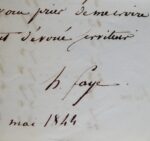 vous prier de me croire
et dévoué serviteur
h. faye
mai 1844